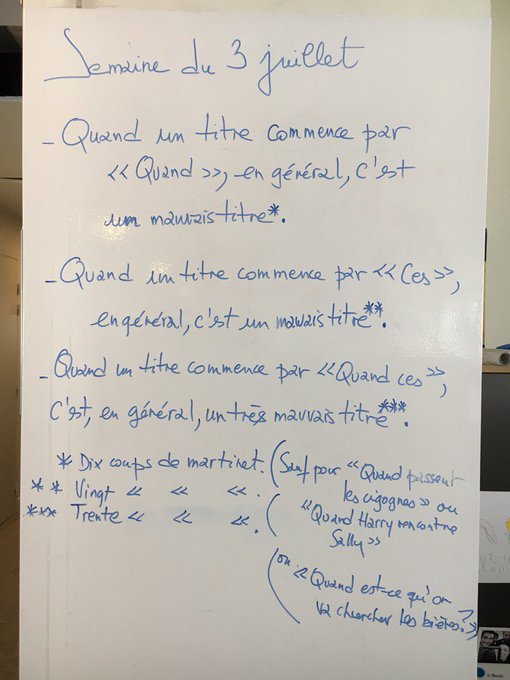 Semaine du 3 juillet
- Quand un titre commence par
« Quand », en général, c'est
un mauvais titre*.
- Quand un titre commence par « Ces »,
en général, c'est un mauvais titre**.
- Quand un titre commence par «Quand ces»,
C'est, en général, un très mauvais titre***.
* Dix coups de martinet. (Sauf pour "Quand passent
les cigognes » ou
** Vingt « « «.
"Quand Harry rencontre
Sally »
*** Trente « « «.
ou « Quand est-ce qu'on
va chercher les bières? »)